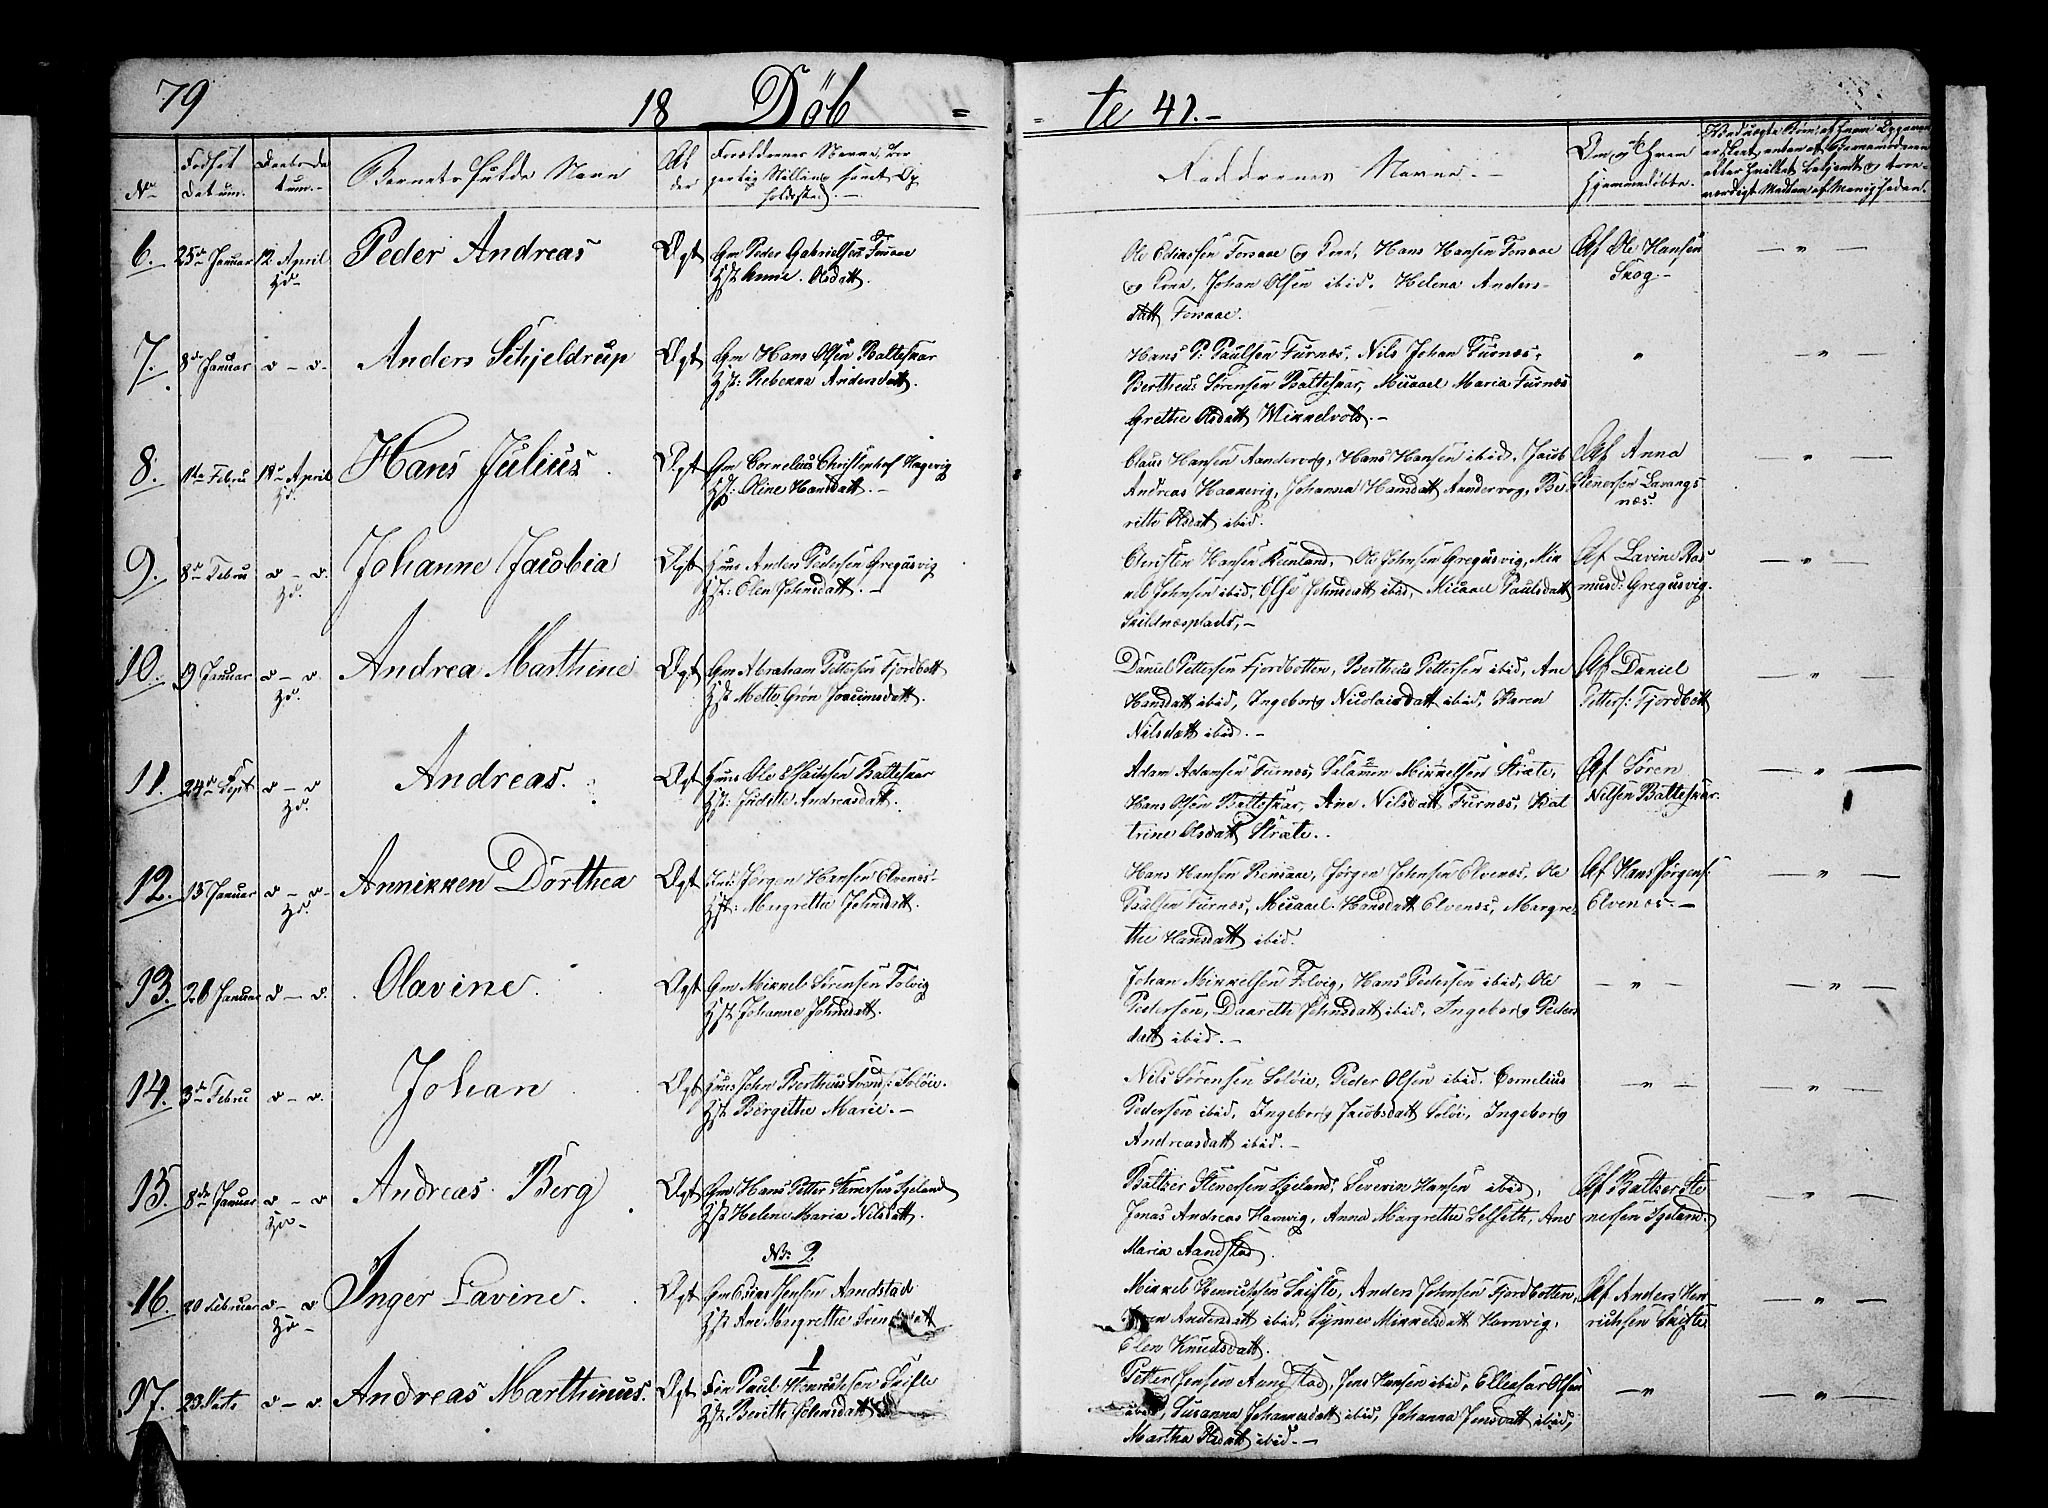 79
18 Döb = - te 41.-
No
Födsels Datum.
Daabs Datum.
Barnets fulde Navn
Forældrenes Navne,
Faddrenes Navne.
Hjemmedöbte.
6. 25de Januar 12 April Hd. Peder Andreas Ægt Gm Peder Gabrielsen Forsaae
Hst: Anne Olsdatt.
Ole Ediassen Forsaae og Kone, Hans Hansen Forsaae
og Kone, Johan Olsen ibid. Helena Anders-
datt Forsaae.
Af Ole Hansen
Skog.-
7. 8de Januar d - d. Anders Schjeldrup Ægt Gm Hans Olsen Balteskar
Hst: Rebekka Andersdatt.
Hans P: Paulsen Furnæs, Nils Johan Furnæs,
Bertheus Sörensen Balteskar, Micaael Maria Furnæs
Grethe Olsdatt Mikkelvold.-
8. 11te Febru 18de April Hd. Hans Julius Ægt Gm Cornelius Christophof Hagevig
Hst: Oline Hansdatt.-
Claus Hansen Aandervog, Hans Hansen ibid, Jacob
Andreas Haakevig, Johanna Hansdatt Aandervog, Be-
rithe Olsdatt ibid.
Af Anna
Stenersen Lavangs
næs.
9. 8de Febru d - d. Hd. Johanne Jacobia Ægt Huus Anders Pedersen Gregusvig
Hst: Elen Johnsdatt.-
Christen Hansen Renland, Ole Johnsen Gregusvig, Mik
kel Johnsen ibid, Else Johnsdatt ibid, Micaael Paulsdatt
Skildnæsplads,-
Af Lavine Ras
musd: Gregusvig.
10. 19 Januar d - d Hd. Andrea Marthine Ægt Gm Abraham Pettersen Fjordbott
Hst Mette Grön Joacimsdatt.
Daniel Pettersen Fjordbotten, Bertheus Pettersen ibid, Ane
Hansdatt ibid, Ingeborg Nicolaisdatt ibid, Karen
Nilsdatt ibid.-
Af Daniel
Petters: Fjordbott
11. 24de Sept d - d Hd. Andreas. Ægt Huus Ole Paulsen Balteskar
Hst: Judithe Andreasdatt.
Adam Adamsen Furnæs, Salamon Mikkelsen Stræte,
Hans Olsen Balteskar, Ane Nilsdatt Furnæs, Kat
trine Olsdatt Stræte.
Af Sören
Nilsen Balteskar.
12. 13 Januar d - d. Hd. Annikken Dorthea Ægt Ind: Jörgen Hansen Elvenes-
Hst: Margrethe Johnsdatt.
Hans Hansen Rensaae, Jörgen Johnsen Elvenes, Ole
Paulsen Furnæs, Micaael Hansdatt Elvenes, Margre-
the Hansdatt ibid.
Af Hans Jörgens:
Elvenæs.-
13. 26 Januar d - d. Olavine Ægt Gm Mikkel Sörensen Folvig
Hst Johanne Johnsdatt.
Johan Mikkelsen Folvig, Hans Pedersen ibid, Ole
Pedersen, Daareth Johnsdatt ibid, Ingeborg Peders
datt ibid.-
14. 3de Febru d - d. Johan Ægt Huus John Bertheus Svends: Solöie.
Hst Birgithe Marie.-
Nils Sörensen Solöie, Peder Olsen ibid. Cornelius
Pedersen ibid, Ingeborg Jacobsdatt Solöi, Ingeborg
Andreasdatt ibid.-
15. 8de Januar d - d Hd- Andreas Berg Ægt Gm Hans Petter Stenersen Igeland
Hst Helene Maria Nilsdatt.
Baltzer Stenersen Igeland, Severin Hansen ibid,
Jonas Andreas Hamvig, Anna Margrethe Selseth, Ane
Maria Aandstad.
Af Baltzer Ste
nersen Igeland.
No. 2
16. 20 Februar d - d Hd- Inger Lavine. Ægt Gm Jensen Aandstad
Hst Ane Margrethe
Mikkel Henrichsen Skifte, Anders Johnsen Fjordbotten,
Andersdatt ibid, Synnev Mikkelsdatt Hamvig,
Elen Knudsdatt.
Af Anders Hen
richsen Skifte
1
17. 23 Marts d - d. Andreas Marthinus. Ægt Paul Henrichsen Skifte
Hst Berithe Johnsdatt
Petter Jensen Aandstad, Jens Hansen ibid, Elleasar Olsen
ibid, Susanna Johannesdatt ibid, Johanna Jensdatt ibid,
Martha Olsdatt ibid.-